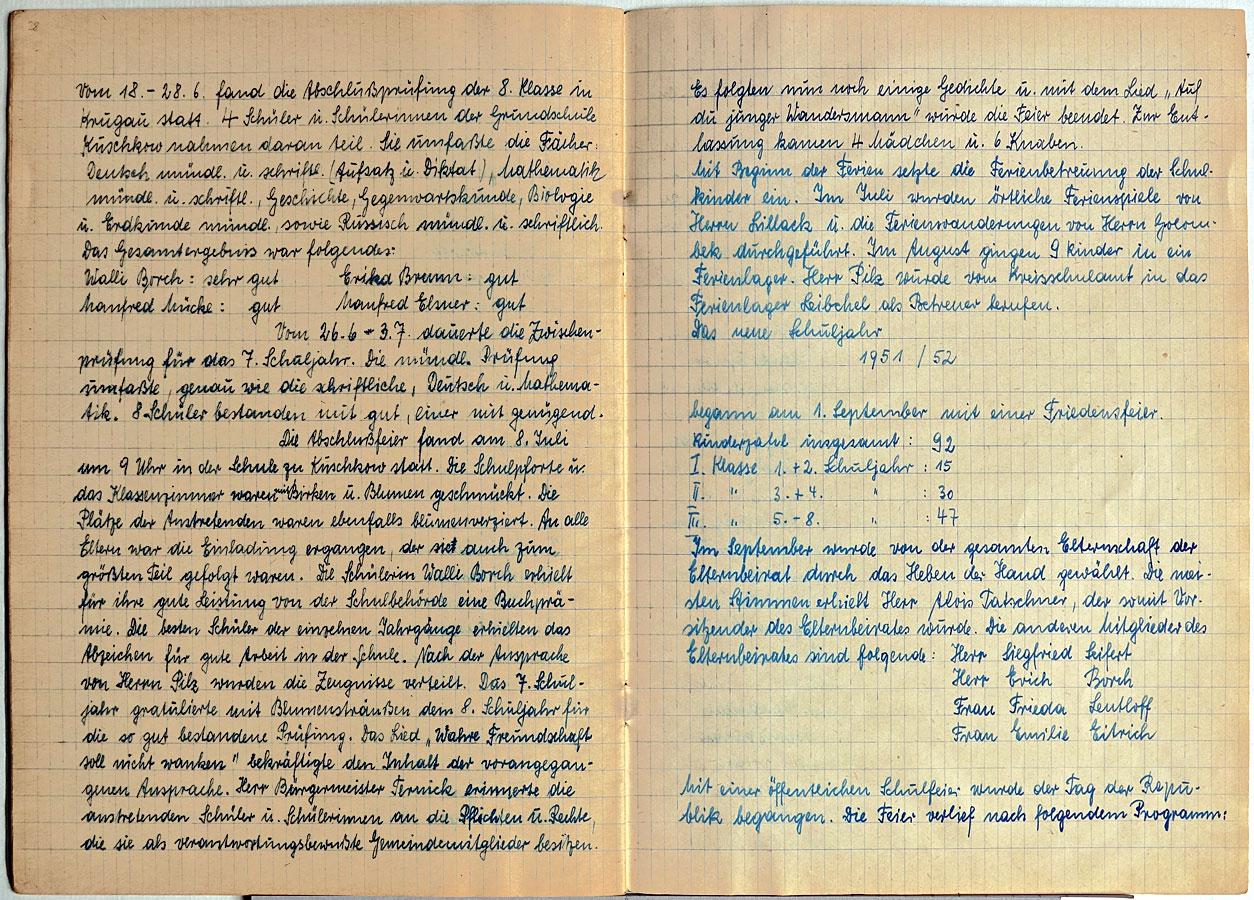 28
Vom 18. - 28. 6. fand die Abschlußprüfung der 8. Klasse in
Krugau statt. 4 Schüler u. Schülerinnen der Grundschule
Kuschkow nahmen daran teil. Sie umfaßte die Fächer:
Deutsch mündl. u. schriftl. (Aufsatz u. Diktat), Mathematik
mündl. u. schriftl., Geschichte, Gegenwartskunde, Biologie
u. Erdkunde mündl., sowie Russisch mündl. u. schriftlich.
Das Gesamtergebnis war folgendes:
Walli Borch: sehr gut Erika Bremm: gut
Manfred Mücke: gut Manfred Elsner: gut
Vom 26.6 - 3.7. dauerte die Zwischen-
prüfung für das 7. Schuljahr. Die mündl. Prüfung
umfaßte, genau wie die schriftliche, Deutsch u. Mathema-
tik. 8 Schüler bestanden mit gut, einer mit genügend.
Die Abschlußfeier fand am 8. Juli
um 9 Uhr in der Schule zu Kuschkow statt. Die Schulpforte u.
das Klassenzimmer waren mit Birken u. Blumen geschmückt. Die
Plätze der Austretenden waren ebenfalls blumenverziert. An alle
Eltern war die Einladung ergangen, der sie auch zum
größten Teil gefolgt waren. Die Schülerin Walli Borch erhielt
für ihre gute Leistung von der Schulbehörde eine Buchprä-
mie. Die besten Schüler der einzelnen Jahrgänge erhielten das
Abzeichen für gute Arbeit in der Schule. Nach der Ansprache
von Herrn Pilz wurden die Zeugnisse verteilt. Das 7. Schul-
jahr gratulierte mit Blumensträußen dem 8. Schuljahr für
die so gut bestandene Prüfung. Das Lied „Wahre Freundschaft
soll nicht wanken" bekräftigte den Inhalt der vorangegan-
genen Ansprache. Herr Bürgermeister Ternick erinnerte die
austretenden Schüler u. Schülerinnen an die Pflichten u. Rechte,
die sie als verantwortungsbewußte Gemeindemitglieder besitzen.
Es folgten nun noch einige Gedichte u. mit dem Lied „Auf
du junger Wandersmann" wurde die Feier beendet. Zur Ent-
lassung kamen 4 Mädchen u. 6 Knaben.
Mit Beginn der Ferien setzte die Ferienbetreuung der Schul-
kinder ein. Im Juli wurden örtliche Ferienspiele von
Herrn Lillack u. die Ferienwanderungen von Herrn Golom-
bek durchgeführt. Im August gingen 9 Kinder in ein
Ferienlager. Herr Pilz wurde vom Kreisschulamt in das
Ferienlager Leibchel als Betreuer berufen.
Das neue Schuljahr
1951 / 52
begann am 1. September mit einer Friedensfeier.
Kinderzahl insgesamt: 92
I. Klasse 1. + 2. Schuljahr: 15
II. " 3. + 4. " : 30
III. " 5. - 8. " : 47
Im September wurde von der gesamten Elternschaft der
Elternbeirat durch das Heben der Hand gewählt. Die mei-
sten Stimmen erhielt Herr Alois Tatschner, der somit Vor-
sitzender des Elternbeirates wurde. Die anderen Mitglieder des
Elternbeirates sind folgende: Herr Siegfried Seifert
Herr Erich Borch
Frau Frieda Lentloff
Frau Emilie Eitrich
Mit einer öffentlichen Schulfeier wurde der Tag der Repu-
blik begangen. Die Feier verlief nach folgendem Programm: